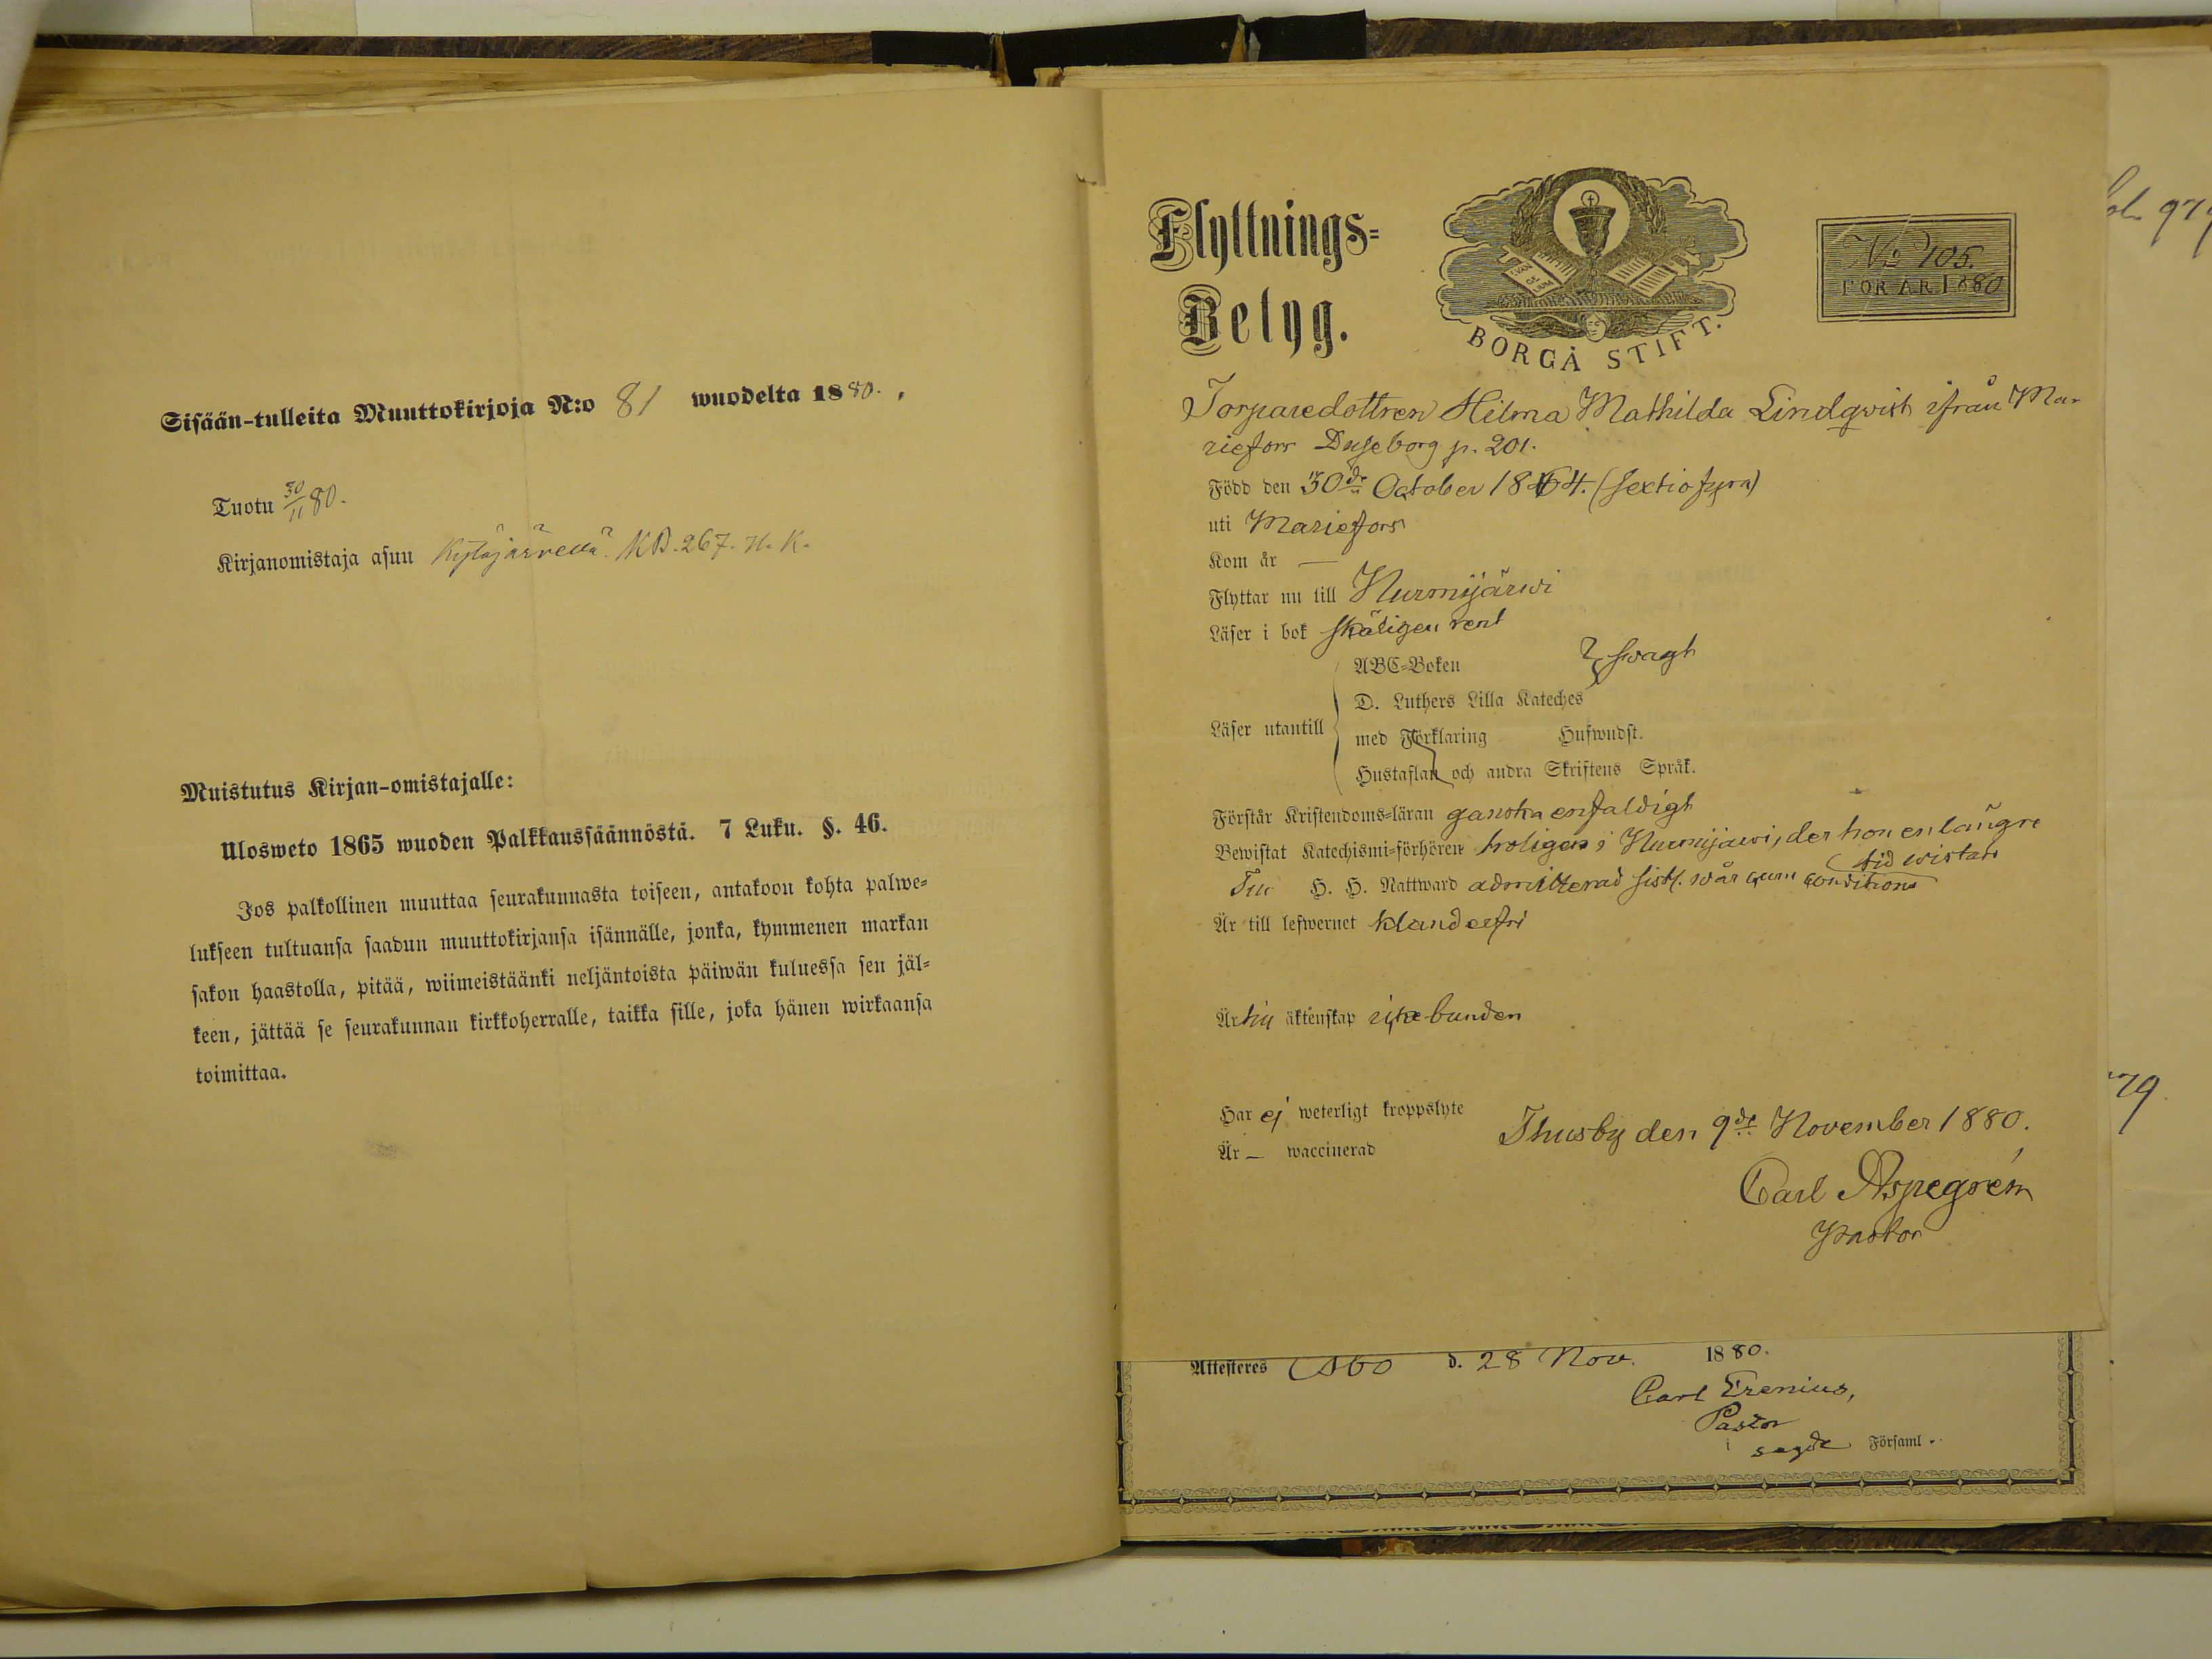 Sisään-tulleita Muuttokirjoja N:o 81 wuodelta 1880.
Tuotu 30/11 80.
Kirjanomistaja asuu Kytäjärvellä. KB. 267. N. K.
Muistutus Kirjan-omistajalle:
Ulosweto 1865 wuoden Palkkaussäännöstä. 7 Luku. §. 46.
Jos palkollinen muuttaa seurakunnasta toiseen, antakoon kohta palwe-
lukseen tultuansa saadun muuttokirjansa isännälle, jonka, kymmenen markan
sakon haastolla, pitää, wiimeistäänki neljäntoista päiwän kuluessa sen jäl-
keen, jättää se seurakunnan kirkkoherralle, taikka sille, joka hänen wirkaansa
toimittaa.
Flyttnings-
Betyg.
EVAN GE LIUM
BORGÅ STIFT.
No 105.
FÖR ÅR 1880
Torparedottren Hilma Mathilda Lindqvist ifrån Ma-
riefors p. 201.
Född den 30de October 1864. (sextiofyra)
uti Mariefors
Kom år —
Flyttar nu till Nurmijärwi
Läser i bok skäligen rent
ABC-Boken } swagt
D. Luthers Lilla Kateches
Läser utantill
med Förklaring Hufwudst.
Hustaflan och andra Skriftens Språk.
Förstår Kristendoms-läran ganska enfaldigt
Bewistat Katechismi-förhören troligen i Nurmijärwi, der hon en längre
tid wistats
Till H. H. Nattward admitterad sistl. wår cum conditione
Är till lefwernet klanderfri
Är till äktenskap icke bunden
Har ej weterligt kroppslyte
Är — waccinerad
Thusby den 9de November 1880.
Carl Aspegrén
Pastor
Attesteres Åbo d. 28 Nov. 1880.
Carl Erenius,
Pastor
i sagde Församl.
979
79